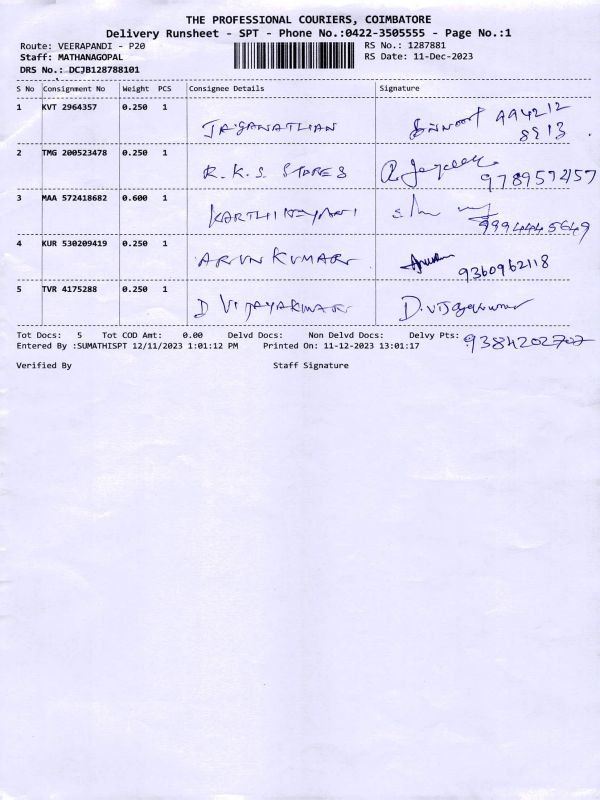 THE PROFESSIONAL COURIERS, COIMBATORE
Delivery Runsheet - SPT - Phone No.:0422-3505555 - Page No.:1
Route: VEERAPANDI - P20
Staff: MATHANAGOPAL
DRS No.: DCJB128788101
RS No.: 1287881
RS Date: 11-Dec-2023
S No Consignment No Weight PCS Consignee Details Signature
1 KVT 2964357 0.250 1 JAGANATHAN 994212
8913
2 TMG 200523478 0.250 1 R.K.S. STORES 9789592157
3 MAA 572418682 0.600 1 KARTHIKEYANI 9994445649
4 KUR 530209419 0.250 1 ARUN KUMAR Arun 9360962118
5 TVR 4175288 0.250 1 D VIJAYAKUMAR D. Vijayakumar
Tot Docs: 5 Tot COD Amt: 0.00 Delvd Docs: Non Delvd Docs: Delvy Pts: 9384202707
Entered By :SUMATHISPT 12/11/2023 1:01:12 PM Printed On: 11-12-2023 13:01:17
Verified By Staff Signature